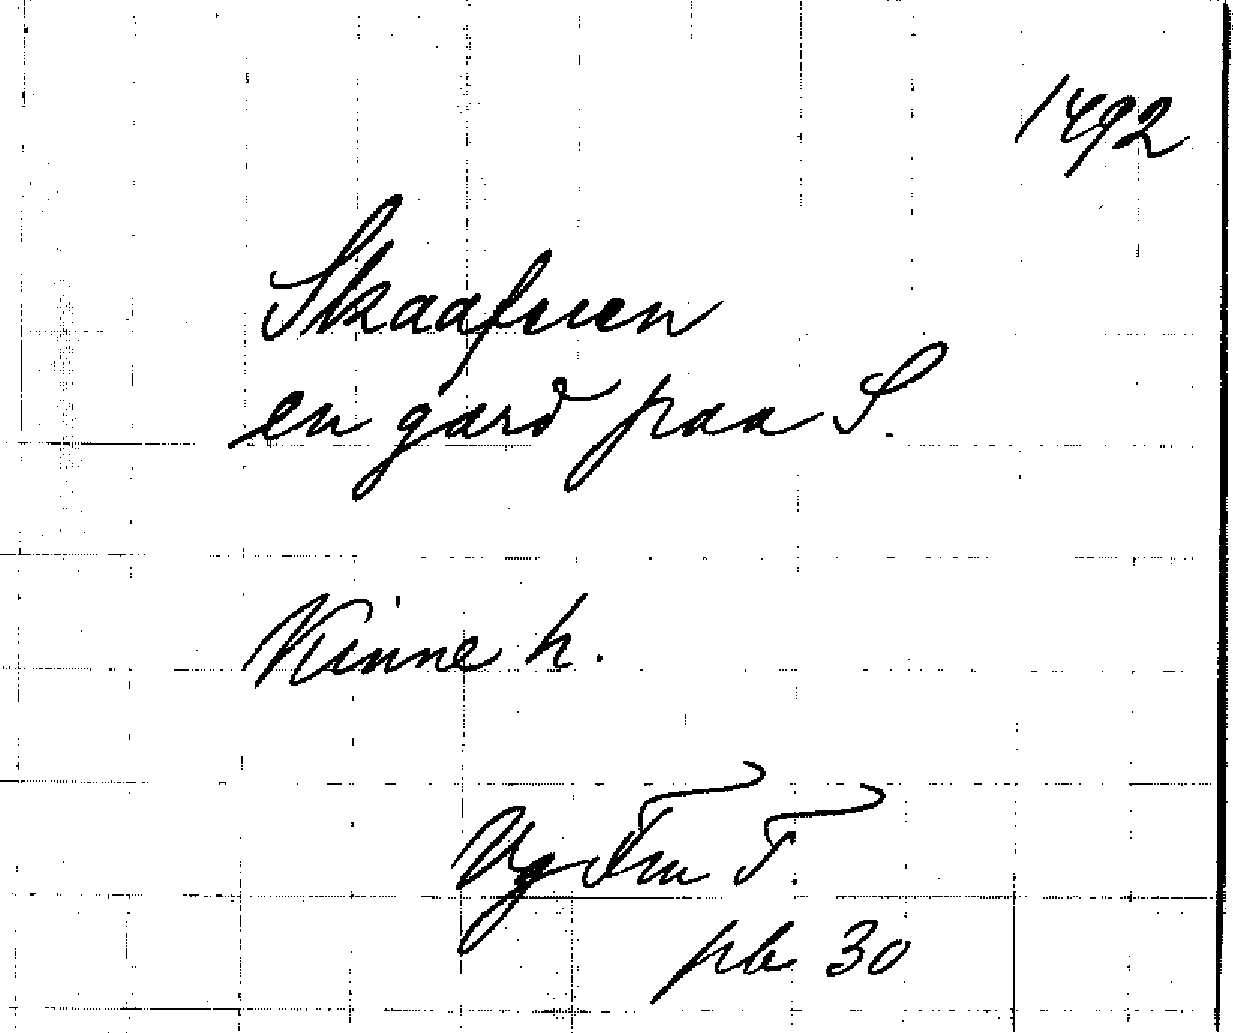 1492
Skaafruen
en gård paa S.
Kinne h.
Vg Fru T.
pb 30